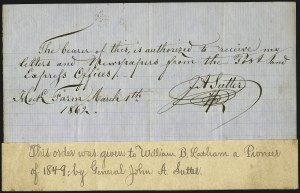 The bearer of this, is authorized to receive my
letters and Newspapers from the Post and
Express Offices.
J A Sutter
Hock Farm March 1th
1862.
This order was given to William B. Lasham a Pioneer
of 1849, by General John A Sutter.